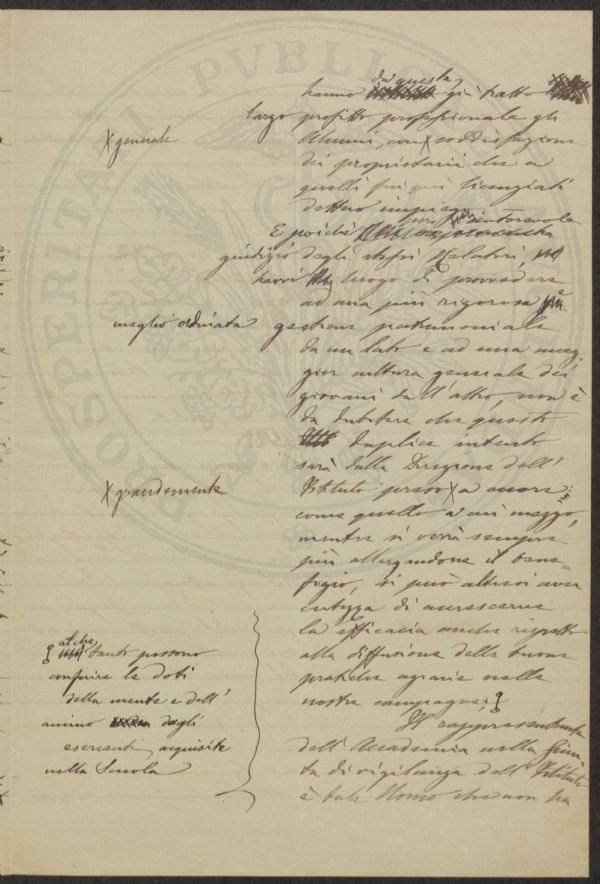 PROSPERITATI PVBLICAE
da questa
hanno già tratto
largo profitto professionale gli
X generale
Alunni, con X soddisfazione
dei proprietarii che a
quelli fin qui licenziati
dettero impiego.
E poichè autorevole
giudizio degli stessi Relatori,
havvi luogo di provvedere
ad una più rigorosa e
meglio ordinata
gestione patrimoniale
da un lato e ad una mag-
gior cultura generale dei
giovani dall'altro, non è
da dubitare che questo
duplice intento
sarà dalla Direzione dell'
X grandemente
Istituto preso X a cuore
come quello a cui mezzo,
mentre si verrà sempre
più allargandone il bene-
fizio, si può altresì aver
certezza di accrescerne
la efficacia anche rispetto
alla diffusione delle buone
pratiche agrarie nelle
nostre campagne;
alche
tanto possono
conferire le doti
della mente e dell'
animo degli
esercenti acquisite
nella Scuola
Il rappresentante
dell'Accademia nella Giun-
ta di vigilanza dell'Istituto
è tale Uomo che non ha